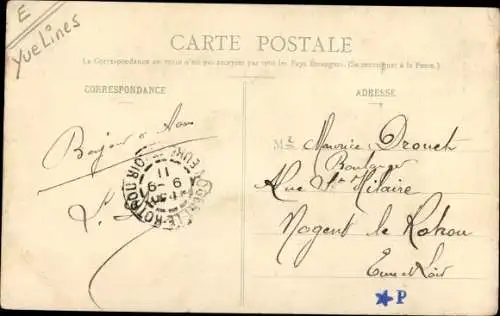 E
Yvelines
CARTE POSTALE
La Correspondance au recto n'est pas acceptée par tous les Pays Étrangers. (Se renseigner à la Poste.)
CORRESPONDANCE
ADRESSE
Bonjour à
Mr Maurice Drouet
Boulanger
Rue St Hilaire
Nogent le Rotrou
Eure et Loir
NOGENT-LE-ROTROU
EURE-ET-LOIR
★P